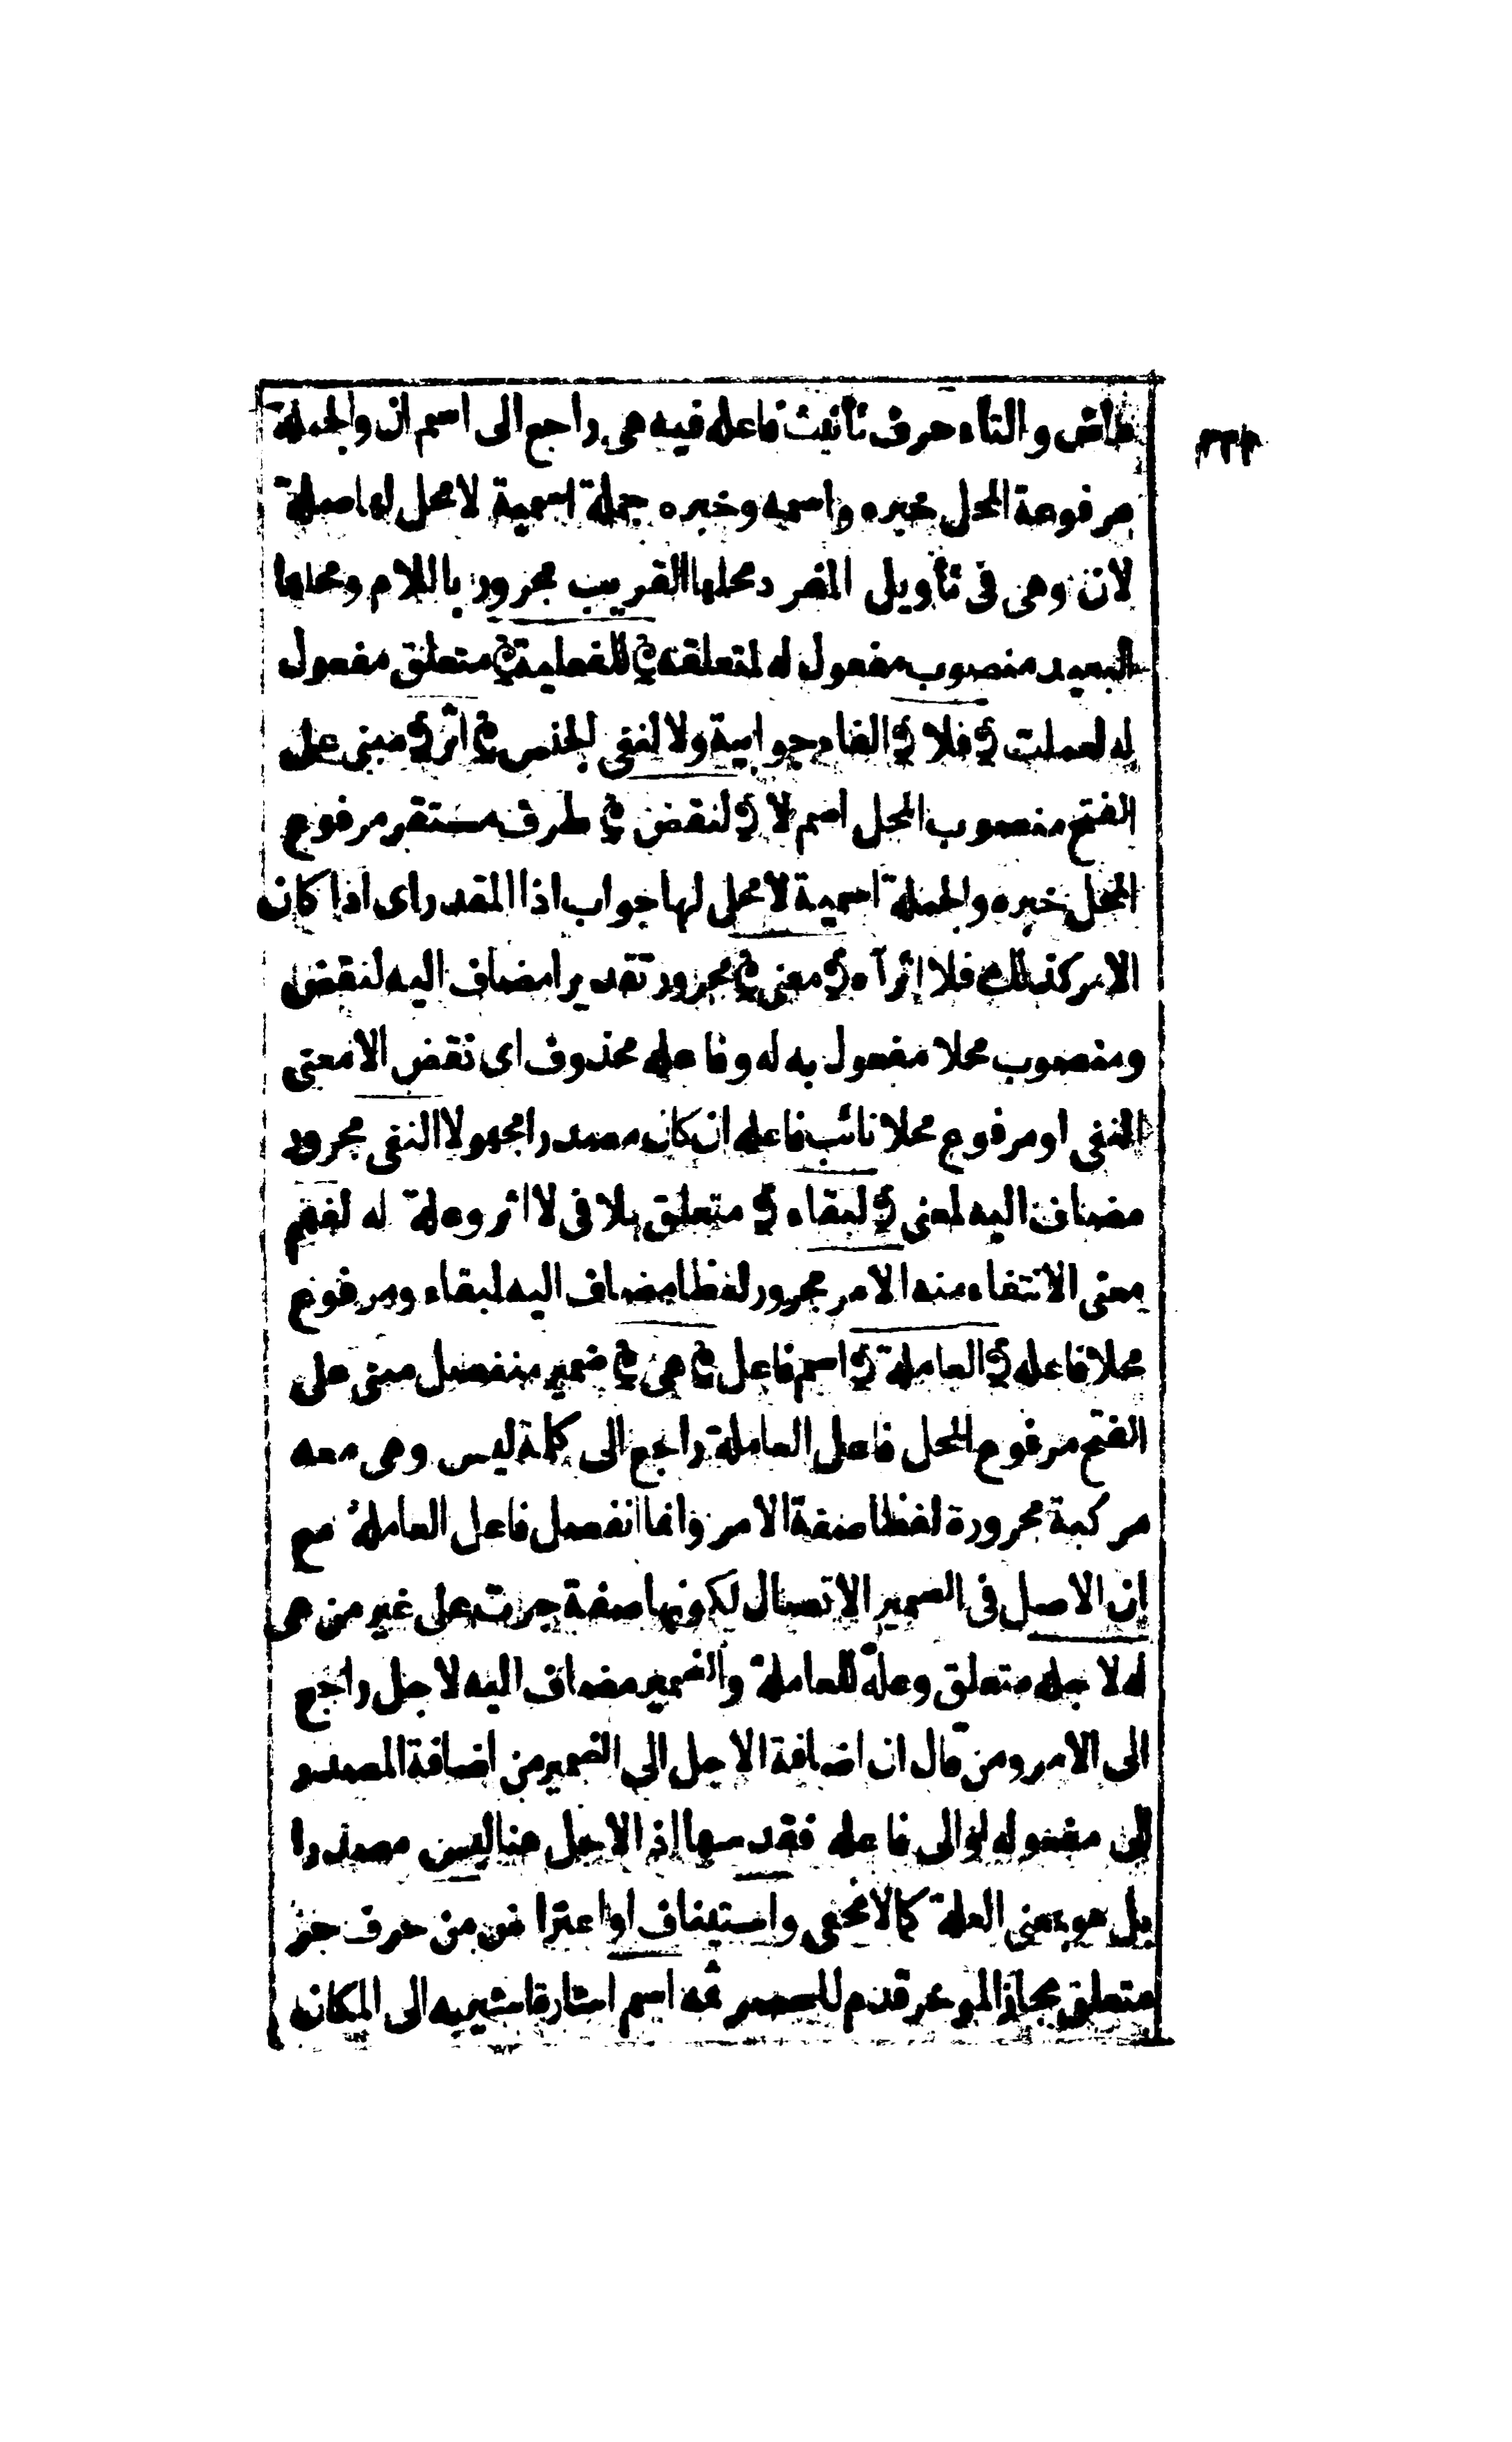 ماض والتاء حرف تأنيث فاعله فيه هى راجع الى اسم ان والجملة
مرفوعة المحل خبره واسمه وخبره جملة اسمية لا محل لها صلة
لان وهى فى تأويل المفرد محلها القريب مجرور باللام ومحلها
البعيد منصوب مفعول له لمتعلقه للفعلية متعلق مفعول
له لعملت فلا الفاء جوابية ولا لنفى الجنس اثر مبنى على
الفتح منصوب المحل اسم لا لنقض ظرف مستقر مرفوع
المحل خبره والجملة اسمية لا محل لها جواب اذا المقدر اى اذا كان
الامر كذلك فلا اثر آه معنى مجرور تقديرا مضاف اليه لنقض
ومنصوب محلا مفعول به له وفاعله محذوف اى نقض الا معنى
النفى او مرفوع محلا نائب فاعله ان كان مصدرا مجهولا النفى مجرور
مضاف اليه لمعنى لبقاء متعلق بلا فى لا اثر وعلة له لفهم
معنى الانتفاء منه الامر مجرور لفظا مضاف اليه لبقاء ومرفوع
محلا فاعله العاملة اسم فاعل هى ضمير منفصل مبنى على
الفتح مرفوع المحل فاعل العاملة راجع الى كلمة ليس وهى معه
مركبة مجرورة لفظا صفة الامر وانما انفصل فاعل العاملة مع
ان الاصل فى الضمير الاتصال لكونها صفة جرت على غير من هى
له لاجله متعلق وعلة للعاملة والضمير مضاف اليه لاجل راجع
الى الامر ومن قال ان اضافة الاجل الى الضمير من اضافة المصدر
الى مفعوله او الى فاعله فقد سها اذ الاجل هنا ليس مصدرا
بل هو بمعنى العلة كما لا يخفى واستيناف او اعتراض من حرف جر
متعلق بجاز الموخر قدم للحصر ثمه اسم اشارة مشير به الى المكان